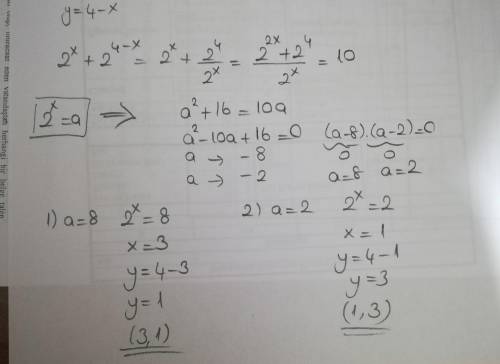 y=4-x
2^x + 2^(4-x) = 2^x + 2^4/2^x = (2^(2x)+2^4)/2^x = 10
2^x=a ⟹ a²+16=10a
a²-10a+16=0 (a-8).(a-2)=0
a → -8 0 0
a → -2 a=8 a=2
1) a=8 2^x=8 2) a=2 2^x=2
x=3 x=1
y=4-3 y=4-1
y=1 y=3
(3,1) (1,3)